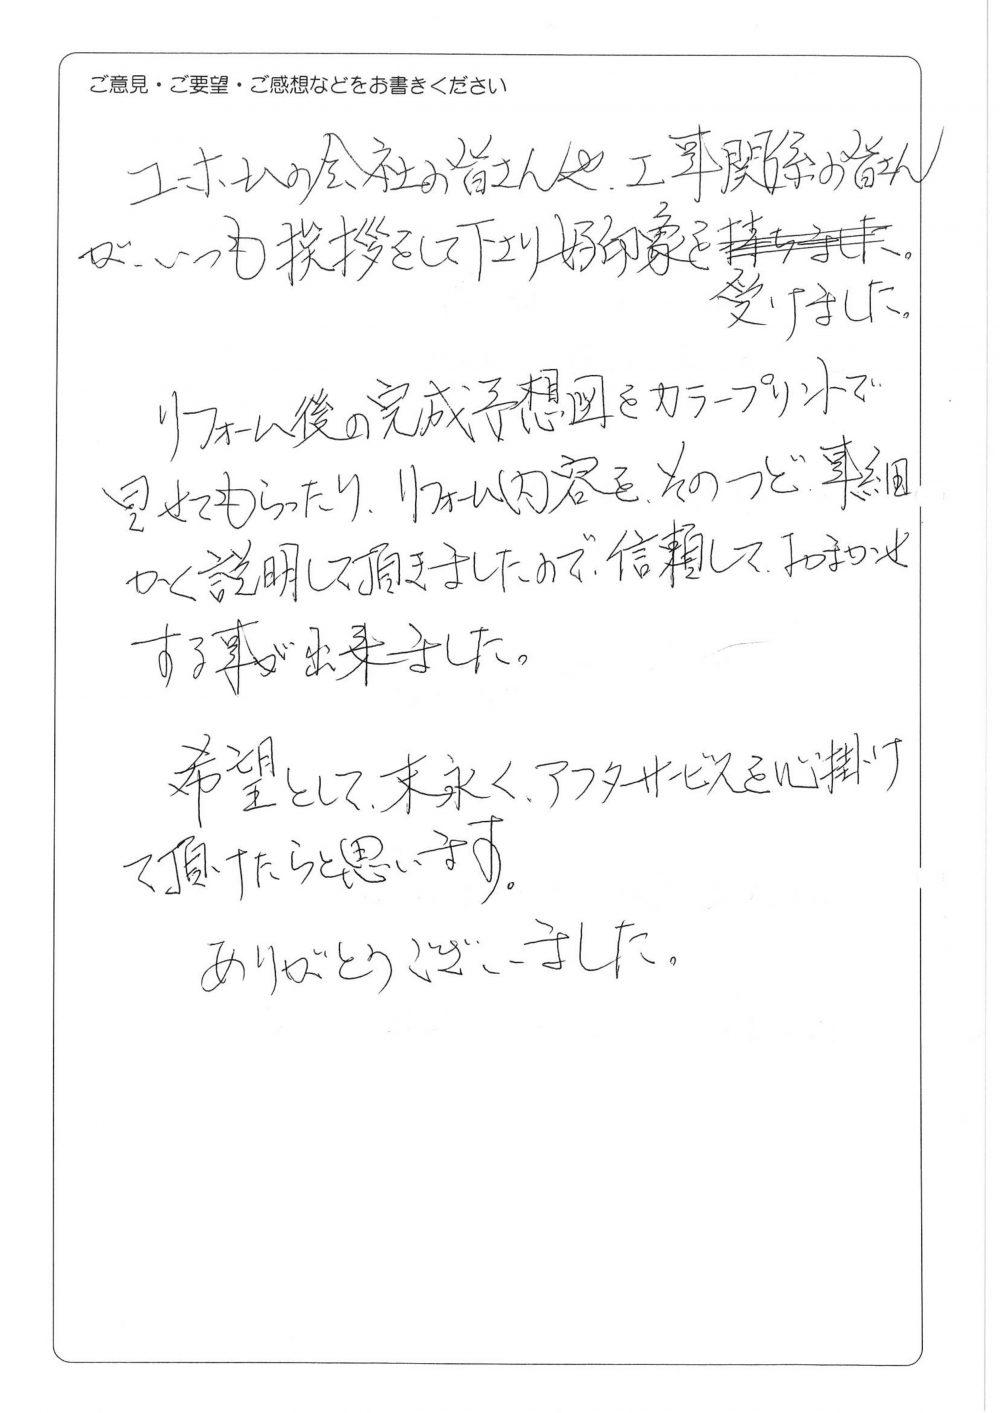 ご意見・ご要望・ご感想などをお書きください
ユーホームの会社の皆さんや、工事関係の皆さん
が、いつも挨拶をして下さり好印象を持ちました。
受けました。
リフォーム後の完成予想図をカラープリントで
見せてもらったり、リフォーム内容を、そのつど、事細
かく説明して頂きましたので、信頼して、おまかせ
する事が出来ました。
希望として、末永く、アフターサービスを心掛け
て頂けたらと思います。
ありがとうございました。